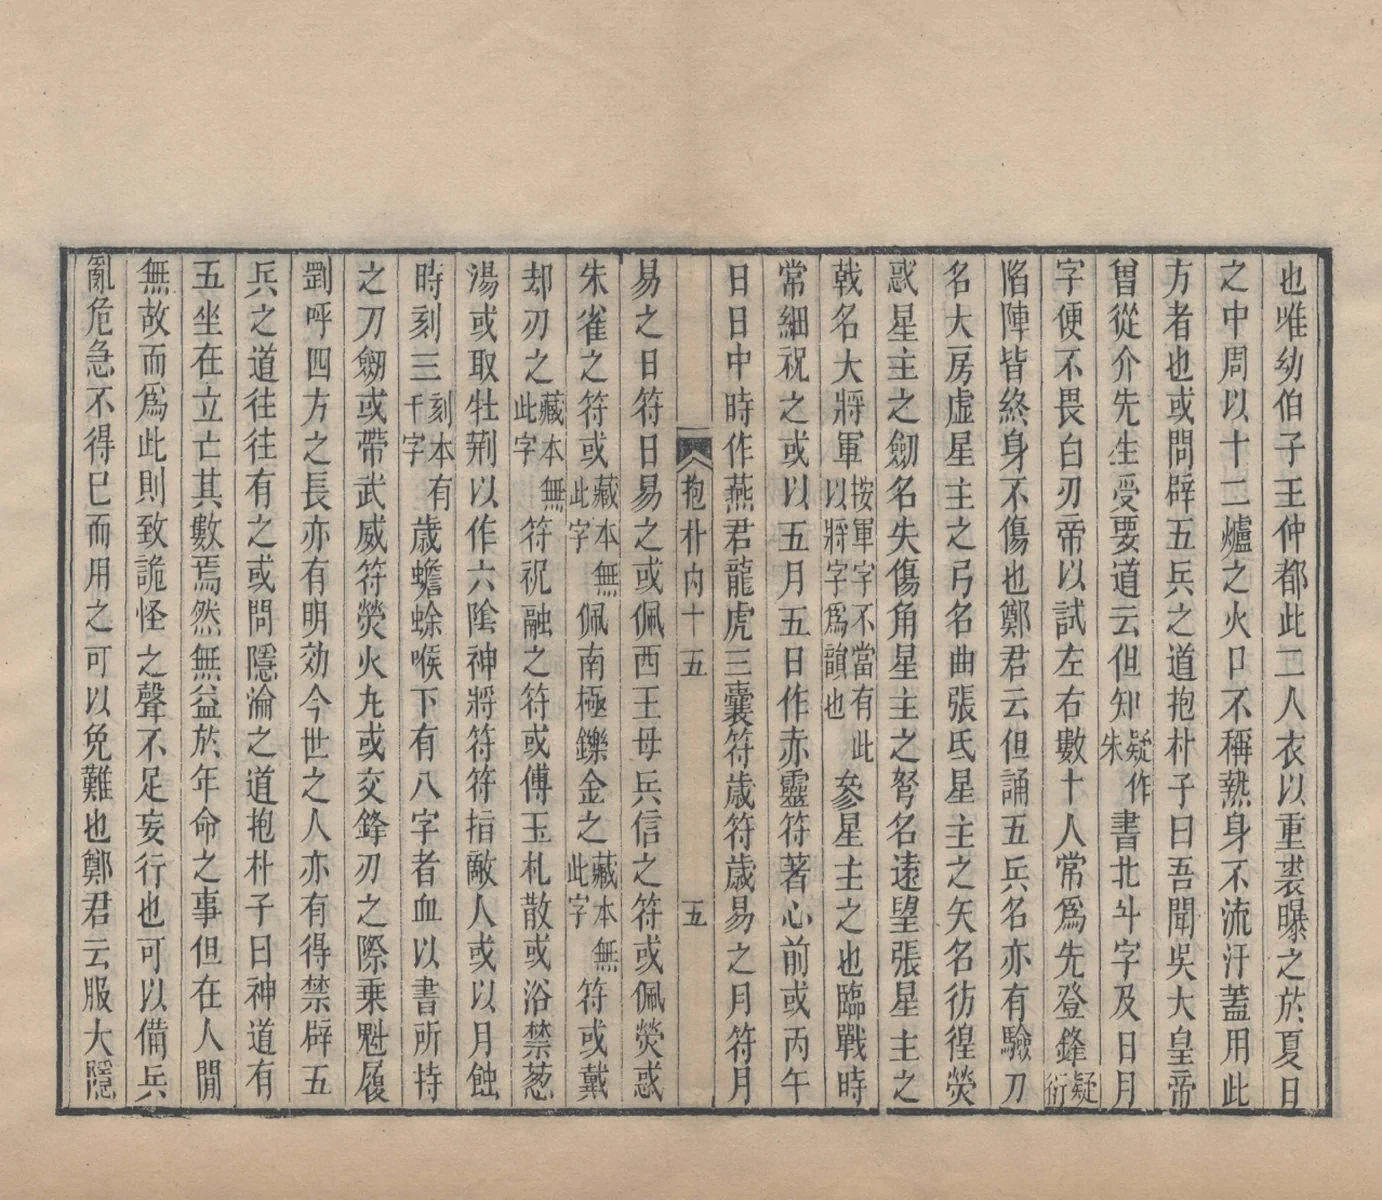 也唯幼伯子王仲都此二人衣以重裘曝之於夏日
之中周以十二爐之火口不稱熱身不流汗蓋用此
方者也或問辟五兵之道抱朴子曰吾聞吳大皇帝
曾從介先生受要道云但知疑作朱書北斗字及日月
字便不畏白刃帝以試左右數十人常爲先登鋒疑衍
陷陣皆終身不傷也鄭君云但誦五兵名亦有驗刀
名大房虛星主之弓名曲張氐星主之矢名彷徨熒
惑星主之劒名失傷角星主之弩名遠望張星主之
戟名大將軍按軍字不當有此以將字爲韻也參星主之也臨戰時
常細祝之或以五月五日作赤靈符著心前或丙午
日日中時作燕君龍虎三囊符歲符歲易之月符月
抱朴内十五 五
易之日符日易之或佩西王母兵信之符或佩熒惑
朱雀之符或藏本無此字佩南極鑠金之藏本無此字符或戴
却刃之藏本無此字符祝融之符或傅玉札散或浴禁葱
湯或取牡荆以作六陰神將符符指敵人或以月蝕
時刻三刻本有千字歲蟾蜍喉下有八字者血以書所持
之刀劒或帶武威符熒火丸或交鋒刃之際乗魁履
𦊅呼四方之長亦有明効今世之人亦有得禁辟五
兵之道往往有之或問隱淪之道抱朴子曰神道有
五坐在立亡其數焉然無益於年命之事但在人閒
無故而爲此則致詭怪之聲不足妄行也可以備兵
亂危急不得已而用之可以免難也鄭君云服大隱